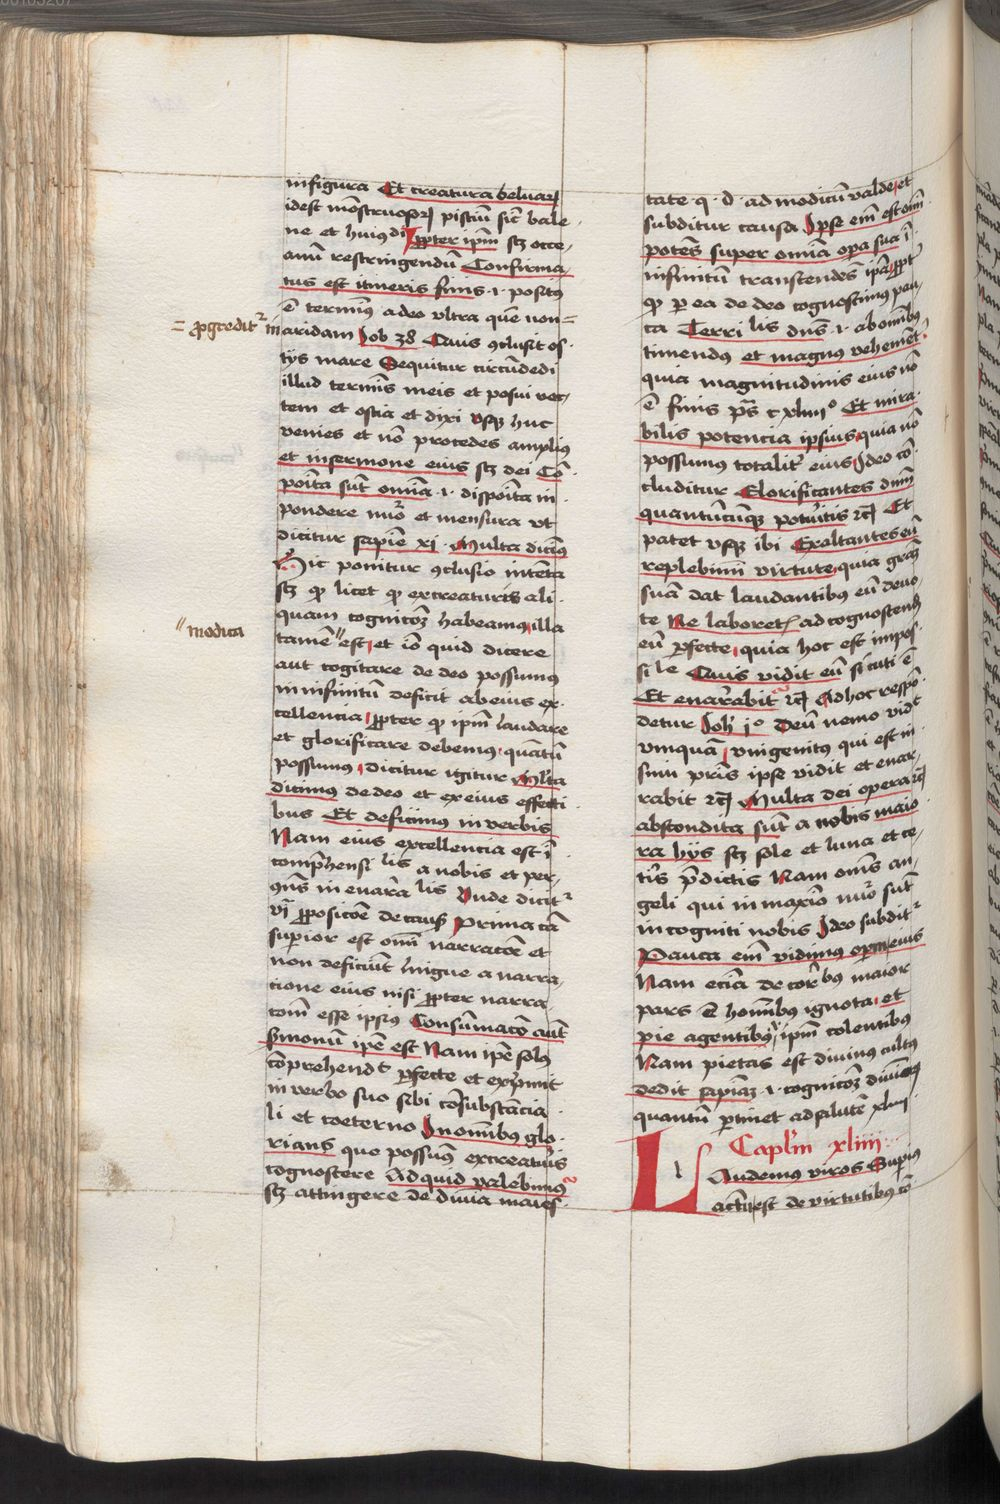 infigura Et creatura beluaꝝ
idest mōstruosoꝝ pisciū sic̄ bale
ne et huiusdi Ꝓpter ipm̄ scꝫ occe
anū restringendū Confirma
tus est itineris finis ·i· positus
ē terminus adeo vltra quē non =
= ꝓgredit᷑ in
aridam Job 38 Quis ꝯclusit os
tijs mare Sequitur circūdedi
illud termīs meis et posui vec
tem et ostia et dixi vsqꝫ huc
venies et nō procedes amplius
et insermone eius scꝫ dei Cō
poīta sūt omīa ·i· dispoīta in
pondere nūo et mensura vt
dicitur sapiē xi · Multa dicimus
Hic ponitur ꝯclusio intenta
scꝫ ꝙ licet ꝙ excreaturis ali
quam cognicōꝫ habeamus illa
tamē " est et iō quid dicere
" modica
aut cogitare de deo possumus
in infinitū deficit abeius ex
cellencia ꝓpter ꝙ ipm̄ laudare
et glorificare debemus quātū
possumus dicitur igitur Ml̄ta
dicimus de deo et ex eius effecti
bus Et deficimus in verbis
Nam eius excellencia est ī
comp̄hensi lis a nobis et per
ꝯn̄s in enarra lis Vnde dicit᷑
vī ꝓposicōe de causis Prima cā
supior est om̄i narracōe et
non deficiūt lingue a narra
cione eius nisi ꝓpter narra
cōm̄ esse ipsius Consūmacō aūt
sermonū ip̄e est Nam ip̄e solus
cōprehendit ꝑfecte et exp̄mit
in verbo suo sibi cōsubstancia
li et coeterno Jnomībus glo
rians que possum̄ excreatur̄s
cognoscere Ad quid valebimus
scꝫ attingere de diuīa maies
tate q · d · ad modicū valde et
subditur causa Jpse em̄ est om̄i
potēs super omīa opa sua ī
infinitū transcendēs ipā ꝓpt̄
ꝙ ꝑ ea de deo cognoscimus pau
ca Terri lis dn̄s ·i· ab omībus
timendus et magnus vehemēt
quia magnitudinis eius nō
ē finis ps̄ cxliiijº Et mira
bilis potencia ipsius quia nō
possumus totalit̄ eius Jdeo cō
cluditur Glorificantes dn̄m
quantūcūqꝫ potūitis ꝛcꝫ Et
patet vsqꝫ ibi Exaltantes eū
replebimī virtute quia grām
suā dat laudantibus eū deuo
te Ne laboretꝭ ad cognoscendū
eū ꝑfecte quia hoc est impos
si le Quis vidit eū sicuti ē
Et enarrabit ꝛcꝫ Adhoc respō
detur Joh̄ jº Deū nemo vidit
vmquā vnigenitus qui est in
sinu pr̄is ipse vidit et enar
rabit ꝛcꝫ Multa dei opera ꝛcꝫ
abscondita sūt a nobis maio
ra hijs scꝫ sole et luna et ce
tis p̄dictis Nam om̄s an
geli qui in maxīo nūo sūt
incogniti nobis Jdeo subdit᷑
Pauca em̄ vidimus operū eius
Nam eciam de corꝑbus maior
pars ē homībus ignota et
pie agentibus ipm̄ colentibus
Nam pietas est diuinus cultus
dedit sapiāꝫ ·i· cognicōꝫ diuinoꝝ
quantū ꝑtinet ad salutē xliiij
Caplm̄ xliiij
Laudemus viros Supius
actū est de virtutibus cō